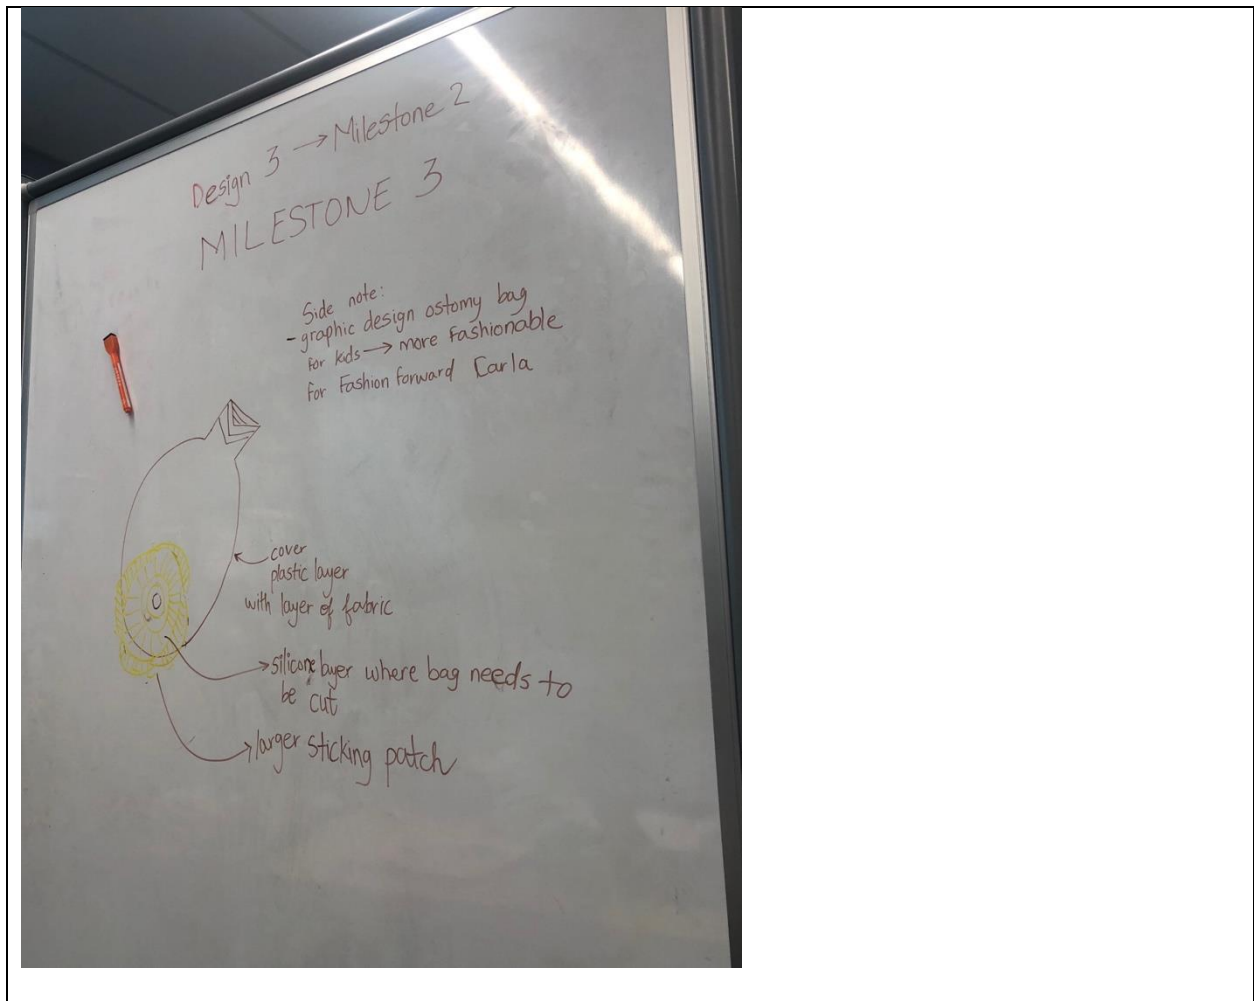 Design 3 → Milestone 2
MILESTONE 3
Side note:
- graphic design ostomy bag
for kids → more fashionable
for Fashion forward Carla
cover
plastic layer
with layer of fabric
silicone layer where bag needs to
be cut
larger sticking patch